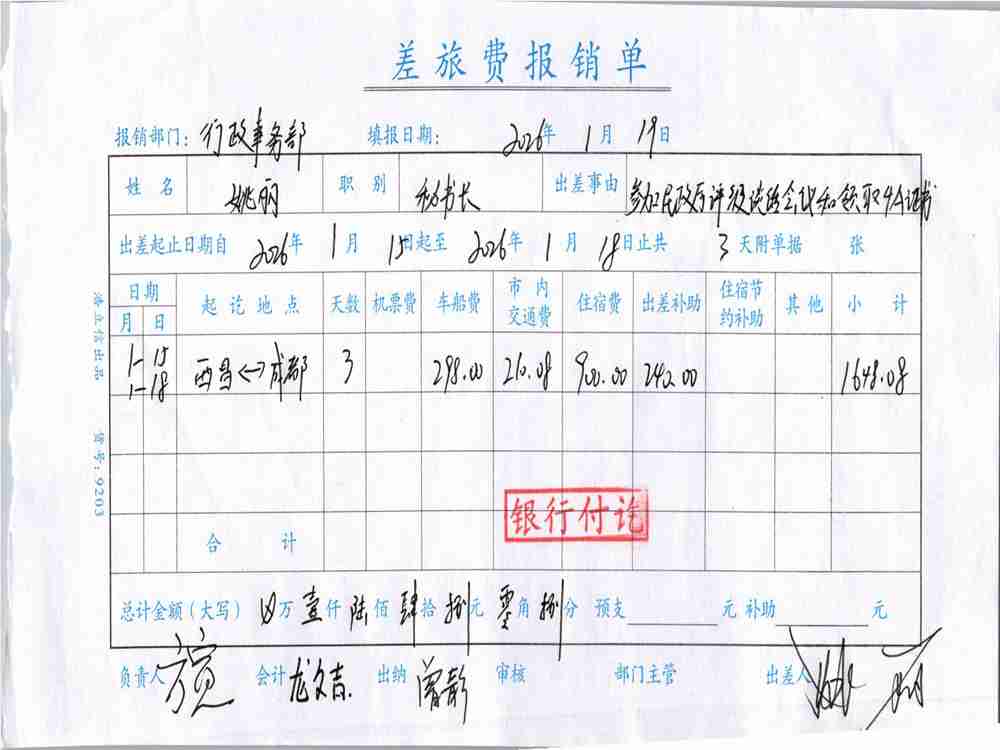 差旅费报销单
报销部门：行政事务部 填报日期： 2026年 1月 19日
姓名 姚丽 职别 秘书长 出差事由 参加民政厅评级谈话会议和领取4A证书
出差起止日期自 2026年 1月 15日起至 2026年 1月 18日止共 3天附单据 张
日期 起讫地点 天数 机票费 车船费 市内交通费 住宿费 出差补助 住宿节约补助 其他 小计
月 日
1-15 西昌<->成都 3 298.00 210.08 900.00 240.00 1648.08
1-18
银行付讫
合计
总计金额（大写） 万 壹仟 陆佰 肆拾 捌元 零角 捌分 预支 元 补助 元
负责人 会计 龙文吉 出纳 曾静 审核 部门主管 出差人 姚丽
货号：9203